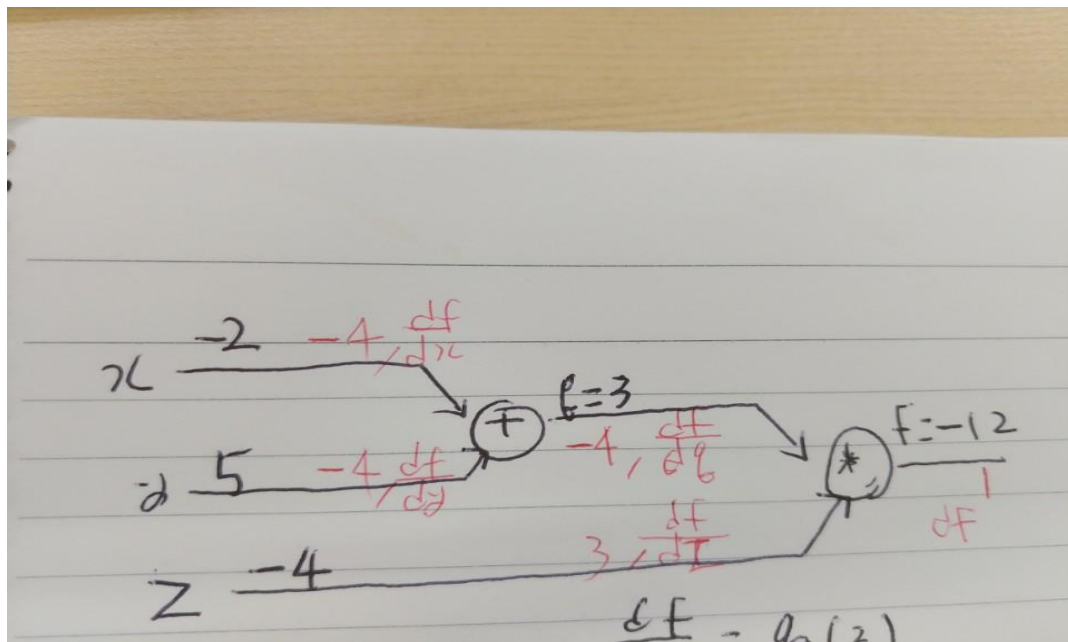 x -2 -4, df/dx
y 5 -4, df/dy
+ q=3
-4, df/dq
* f=-12
1
df
z -4 3, df/dz
df